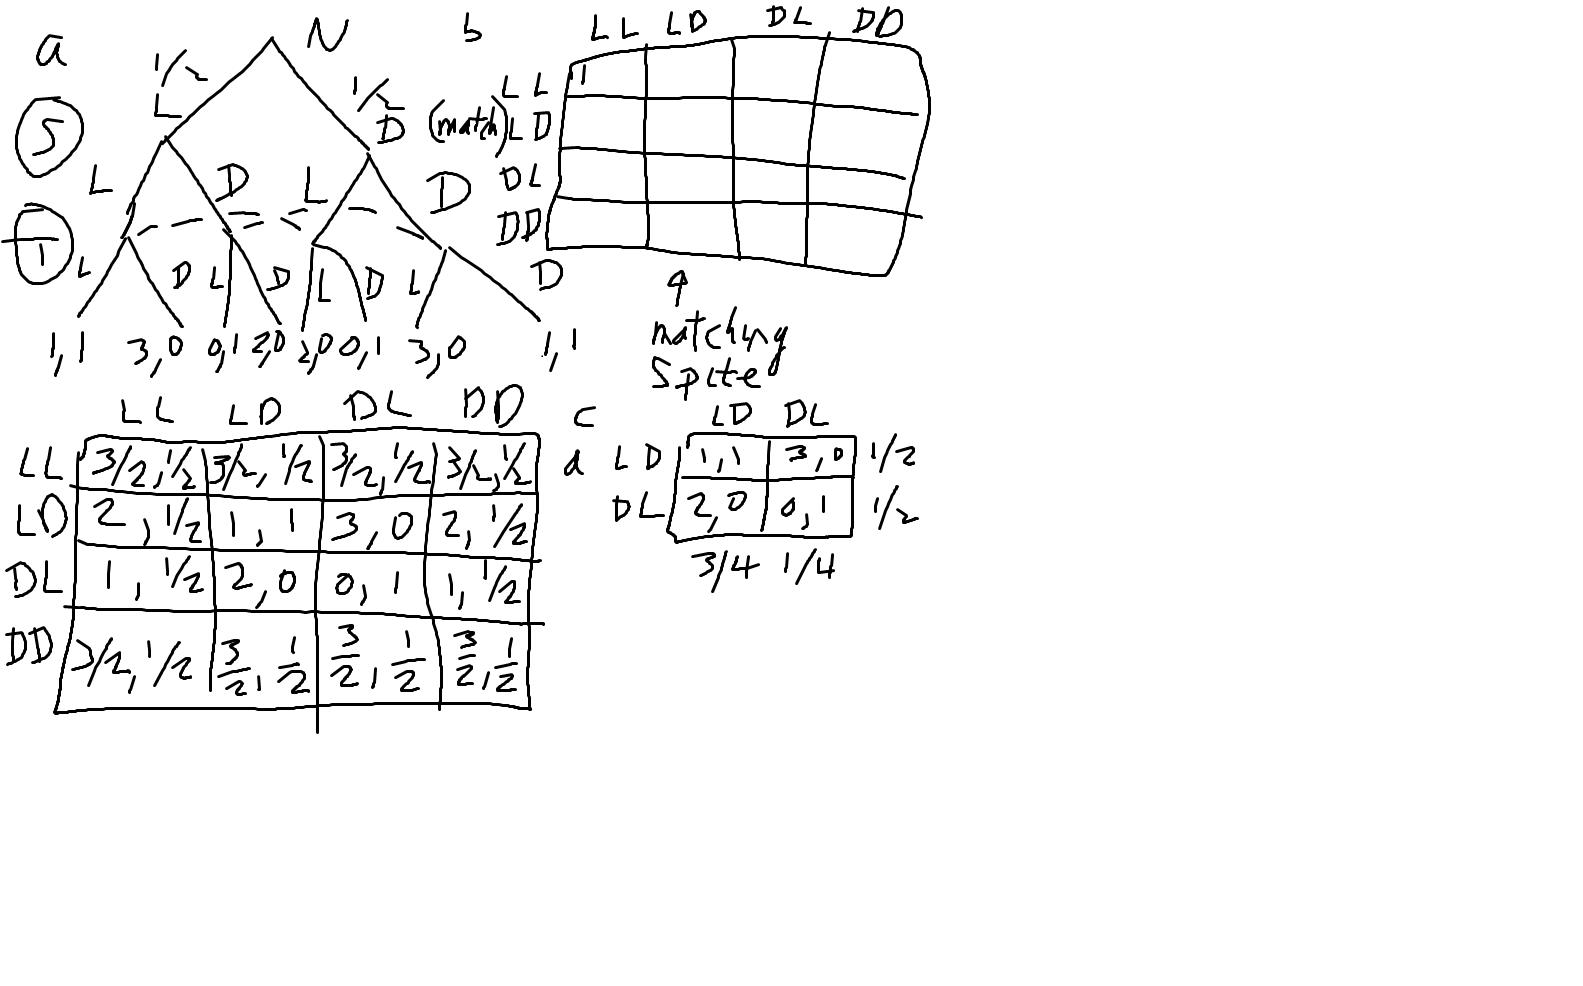 a
N
1/2
1/2
L
D
S
L
D
L
D
T
L
D
L
D
L
D
L
D
1,1 3,0 0,1 2,0 2,0 0,1 3,0 1,1
b
LL LD DL DD
LL 1
(match) LD
DL
DD
matching
Spite
LL LD DL DD
LL 3/2,1/2 3/2,1/2 3/2,1/2 3/2,1/2
LD 2,1/2 1,1 3,0 2,1/2
DL 1,1/2 2,0 0,1 1,1/2
DD 3/2,1/2 3/2,1/2 3/2,1/2 3/2,1/2
c
d
LD DL
LD 1,1 3,0 1/2
DL 2,0 0,1 1/2
3/4 1/4